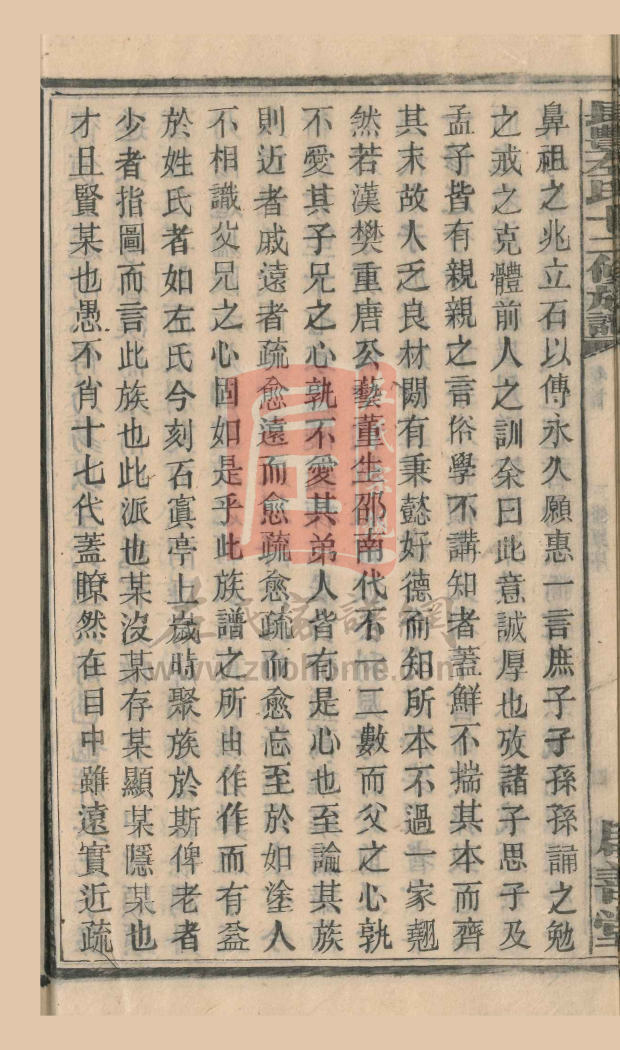 長豐左氏十二修族譜
鼻祖之兆立石以傳永久願惠一言庶子子孫孫誦之勉
之戒之克體前人之訓余曰此意誠厚也攷諸子思子及
孟子皆有親親之言俗學不講知者蓋鮮不揣其本而齊
其末故人乏良材闕有秉懿好德而知所本不過一家翹
然若漢樊重唐公藝董生邵南代不一二數而父之心孰
不愛其子兄之心孰不愛其弟人皆有是心也至論其族
則近者戚遠者疏愈遠而愈疏愈疏而愈忘至於如塗人
不相識父兄之心固如是乎此族譜之所由作作而有益
於姓氏者如左氏今刻石寘亭上歲時聚族於斯俾老者
少者指圖而言此族也此派也某沒某存某顯某隱某也
才且賢某也愚不肖十七代蓋瞭然在目中雖遠實近疏
左氏族譜網
www.zuohome.com